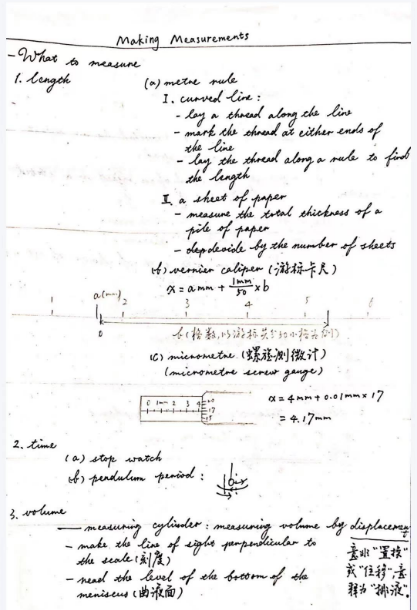 Making Measurements
- What to measure
1. length
(a) metre rule
I. curved line:
- lay a thread along the line
- mark the thread at either ends of
the line
- lay the thread along a rule to find
the length
II. a sheet of paper
- measure the total thickness of a
pile of paper
- by the number of sheets
(b) vernier caliper (游标卡尺)
x = a mm + 1mm/50 × b
a(mm) 2 3 4 5 6
0
b(格数,以游标共50小格为例)
(c) micrometre (螺旋测微计)
(micrometre screw gauge)
0 1mm 2 3 4
x = 4mm + 0.01mm × 17
= 4.17mm
2. time
(a) stop watch
(b) pendulum period:
3. volume
— measuring cylinder: measuring volume by displacement
- make the line of sight perpendicular to
the scale (刻度)
- read the level of the bottom of the
meniscus (曲液面)
意非“置换”
或“位移”,意
释为“排液”。